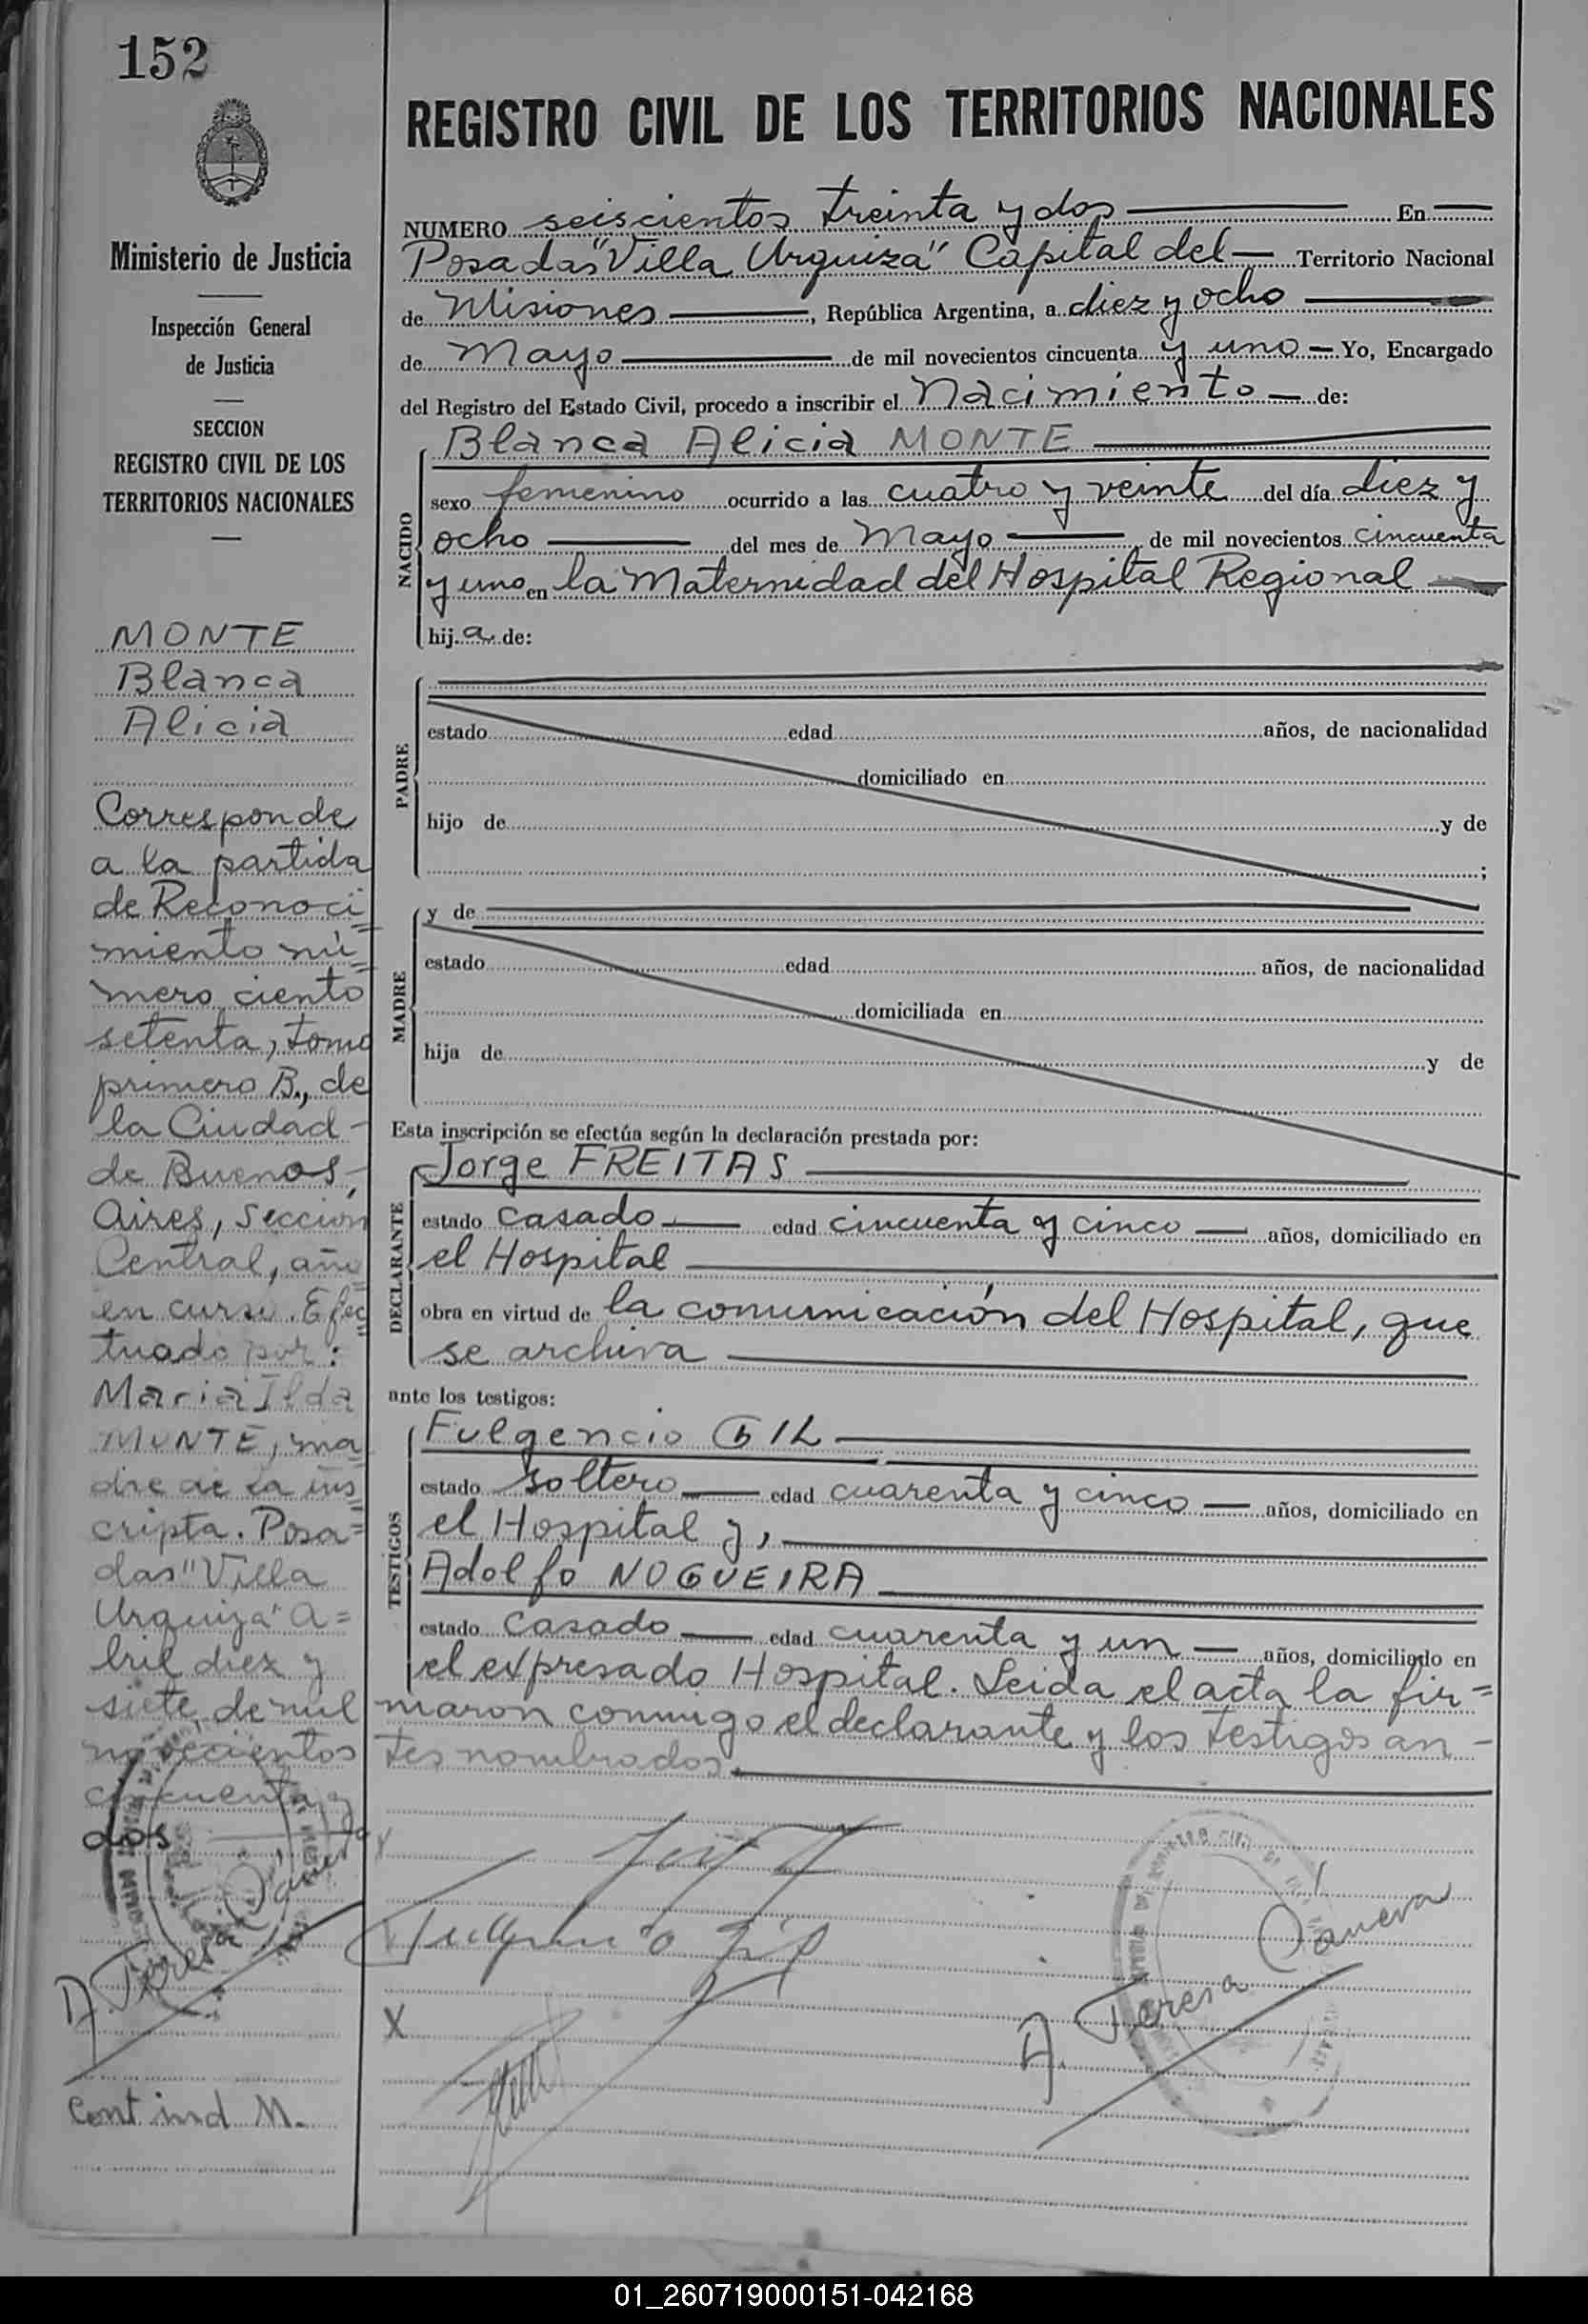 152
Ministerio de Justicia
Inspección General
de Justicia
SECCION
REGISTRO CIVIL DE LOS
TERRITORIOS NACIONALES
MONTE
Blanca
Alicia
Corresponde
a la partida
de Reconoci=
miento nú=
mero ciento
setenta, tomo
primero B., de
la Ciudad-
de Buenos-
Aires, Sección
Central, año
en curso. Efec=
tuado por:
Maria Ilda
MONTE, ma=
dre de la ins=
cripta. Posa=
das "Villa
Urquiza" A=
bril diez y
siete, de mil
novecientos
cincuenta y
dos
A. Teresa Cáneva
Cont. ind M.
REGISTRO CIVIL DE LOS TERRITORIOS NACIONALES
NUMERO seiscientos treinta y dos En
Posadas "Villa Urquiza" Capital del Territorio Nacional
de Misiones, República Argentina, a diez y ocho
de Mayo de mil novecientos cincuenta y uno Yo, Encargado
del Registro del Estado Civil, procedo a inscribir el Nacimiento de:
NACIDO
Blanca Alicia MONTE
sexo femenino ocurrido a las cuatro y veinte del día diez y
ocho del mes de Mayo de mil novecientos cincuenta
y uno en la Maternidad del Hospital Regional
hija de:
PADRE
estado edad años, de nacionalidad
domiciliado en
hijo de y de
;
MADRE
y de
estado edad años, de nacionalidad
domiciliada en
hija de y de
Esta inscripción se efectúa según la declaración prestada por:
DECLARANTE
Jorge FREITAS
estado casado edad cincuenta y cinco años, domiciliado en
el Hospital
obra en virtud de la comunicación del Hospital, que
se archiva
ante los testigos:
TESTIGOS
Fulgencio GIL
estado soltero edad cuarenta y cinco años, domiciliado en
el Hospital y,
Adolfo NOGUEIRA
estado casado edad cuarenta y un años, domiciliado en
el expresado Hospital. Leida el acta la fir=
maron conmigo el declarante y los testigos an-
tes nombrados.
Fulgencio Gil
X
A. Teresa Cáneva
01_260719000151-042168